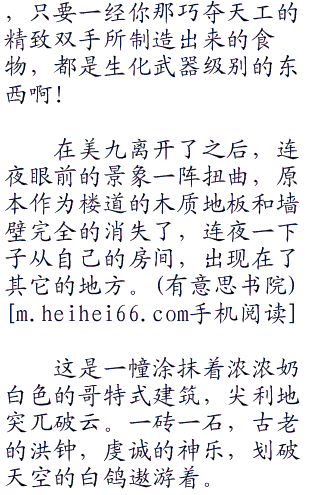 ，只要一经你那巧夺天工的
精致双手所制造出来的食
物，都是生化武器级别的东
西啊！
在美九离开了之后，连
夜眼前的景象一阵扭曲，原
本作为楼道的木质地板和墙
壁完全的消失了，连夜一下
子从自己的房间，出现在了
其它的地方。(有意思书院)
[m.heihei66.com手机阅读]
这是一幢涂抹着浓浓奶
白色的哥特式建筑，尖利地
突兀破云。一砖一石，古老
的洪钟，虔诚的神乐，划破
天空的白鸽遨游着。